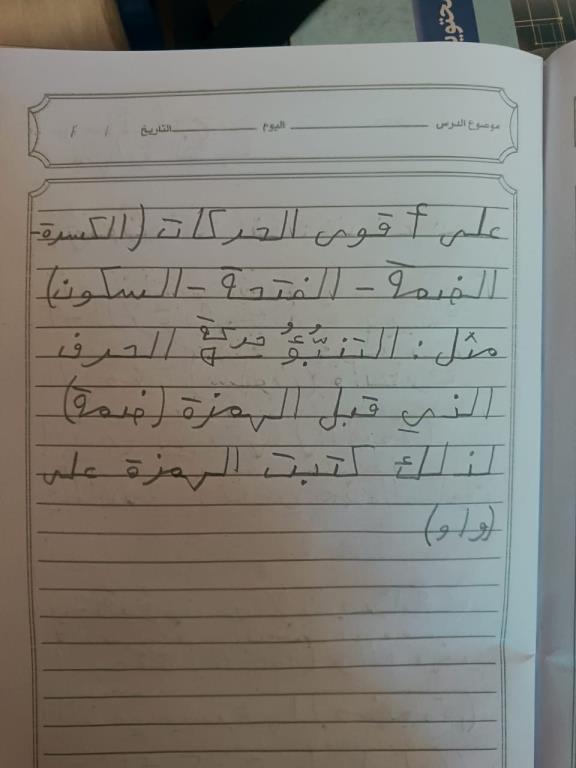 محتوى
موضوع الدرس اليوم التاريخ / /
على أقوى الحركات (الكسرة-
الضمة - الفتحة - السكون)
مثل : التنبُّؤُ حركة الحرف
الذي قبل الهمزة (ضمة)
لذلك كتبت الهمزة على
(واو)